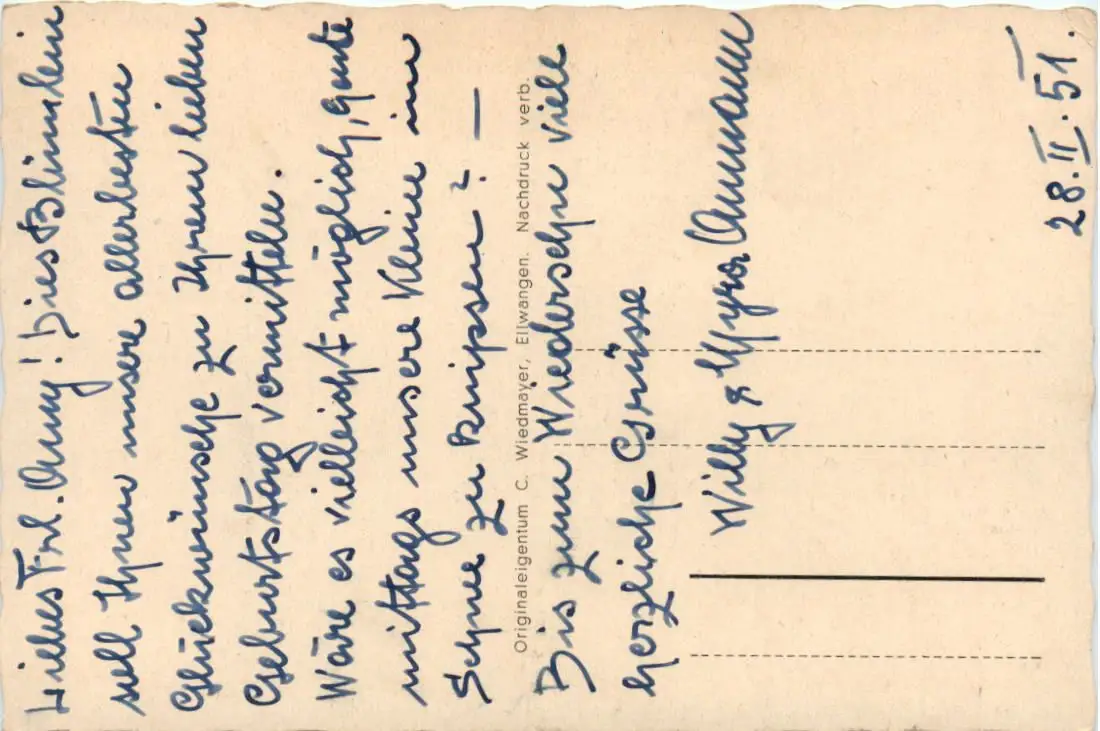 28.II.51.
Liebes Frl. Anny! Dies Blümlein
soll Ihnen unsere allerbesten
Glückwünsche zu Ihrem lieben
Geburtstag vermitteln.
Wäre es vielleicht möglich, heute
mittags unsere Kleine im
Schnee zu knipsen? —
Originaleigentum C. Wiedmayer, Ellwangen. Nachdruck verb.
Bis zum Wiedersehn viele
herzliche Grüsse
Willy & Myra Ammann